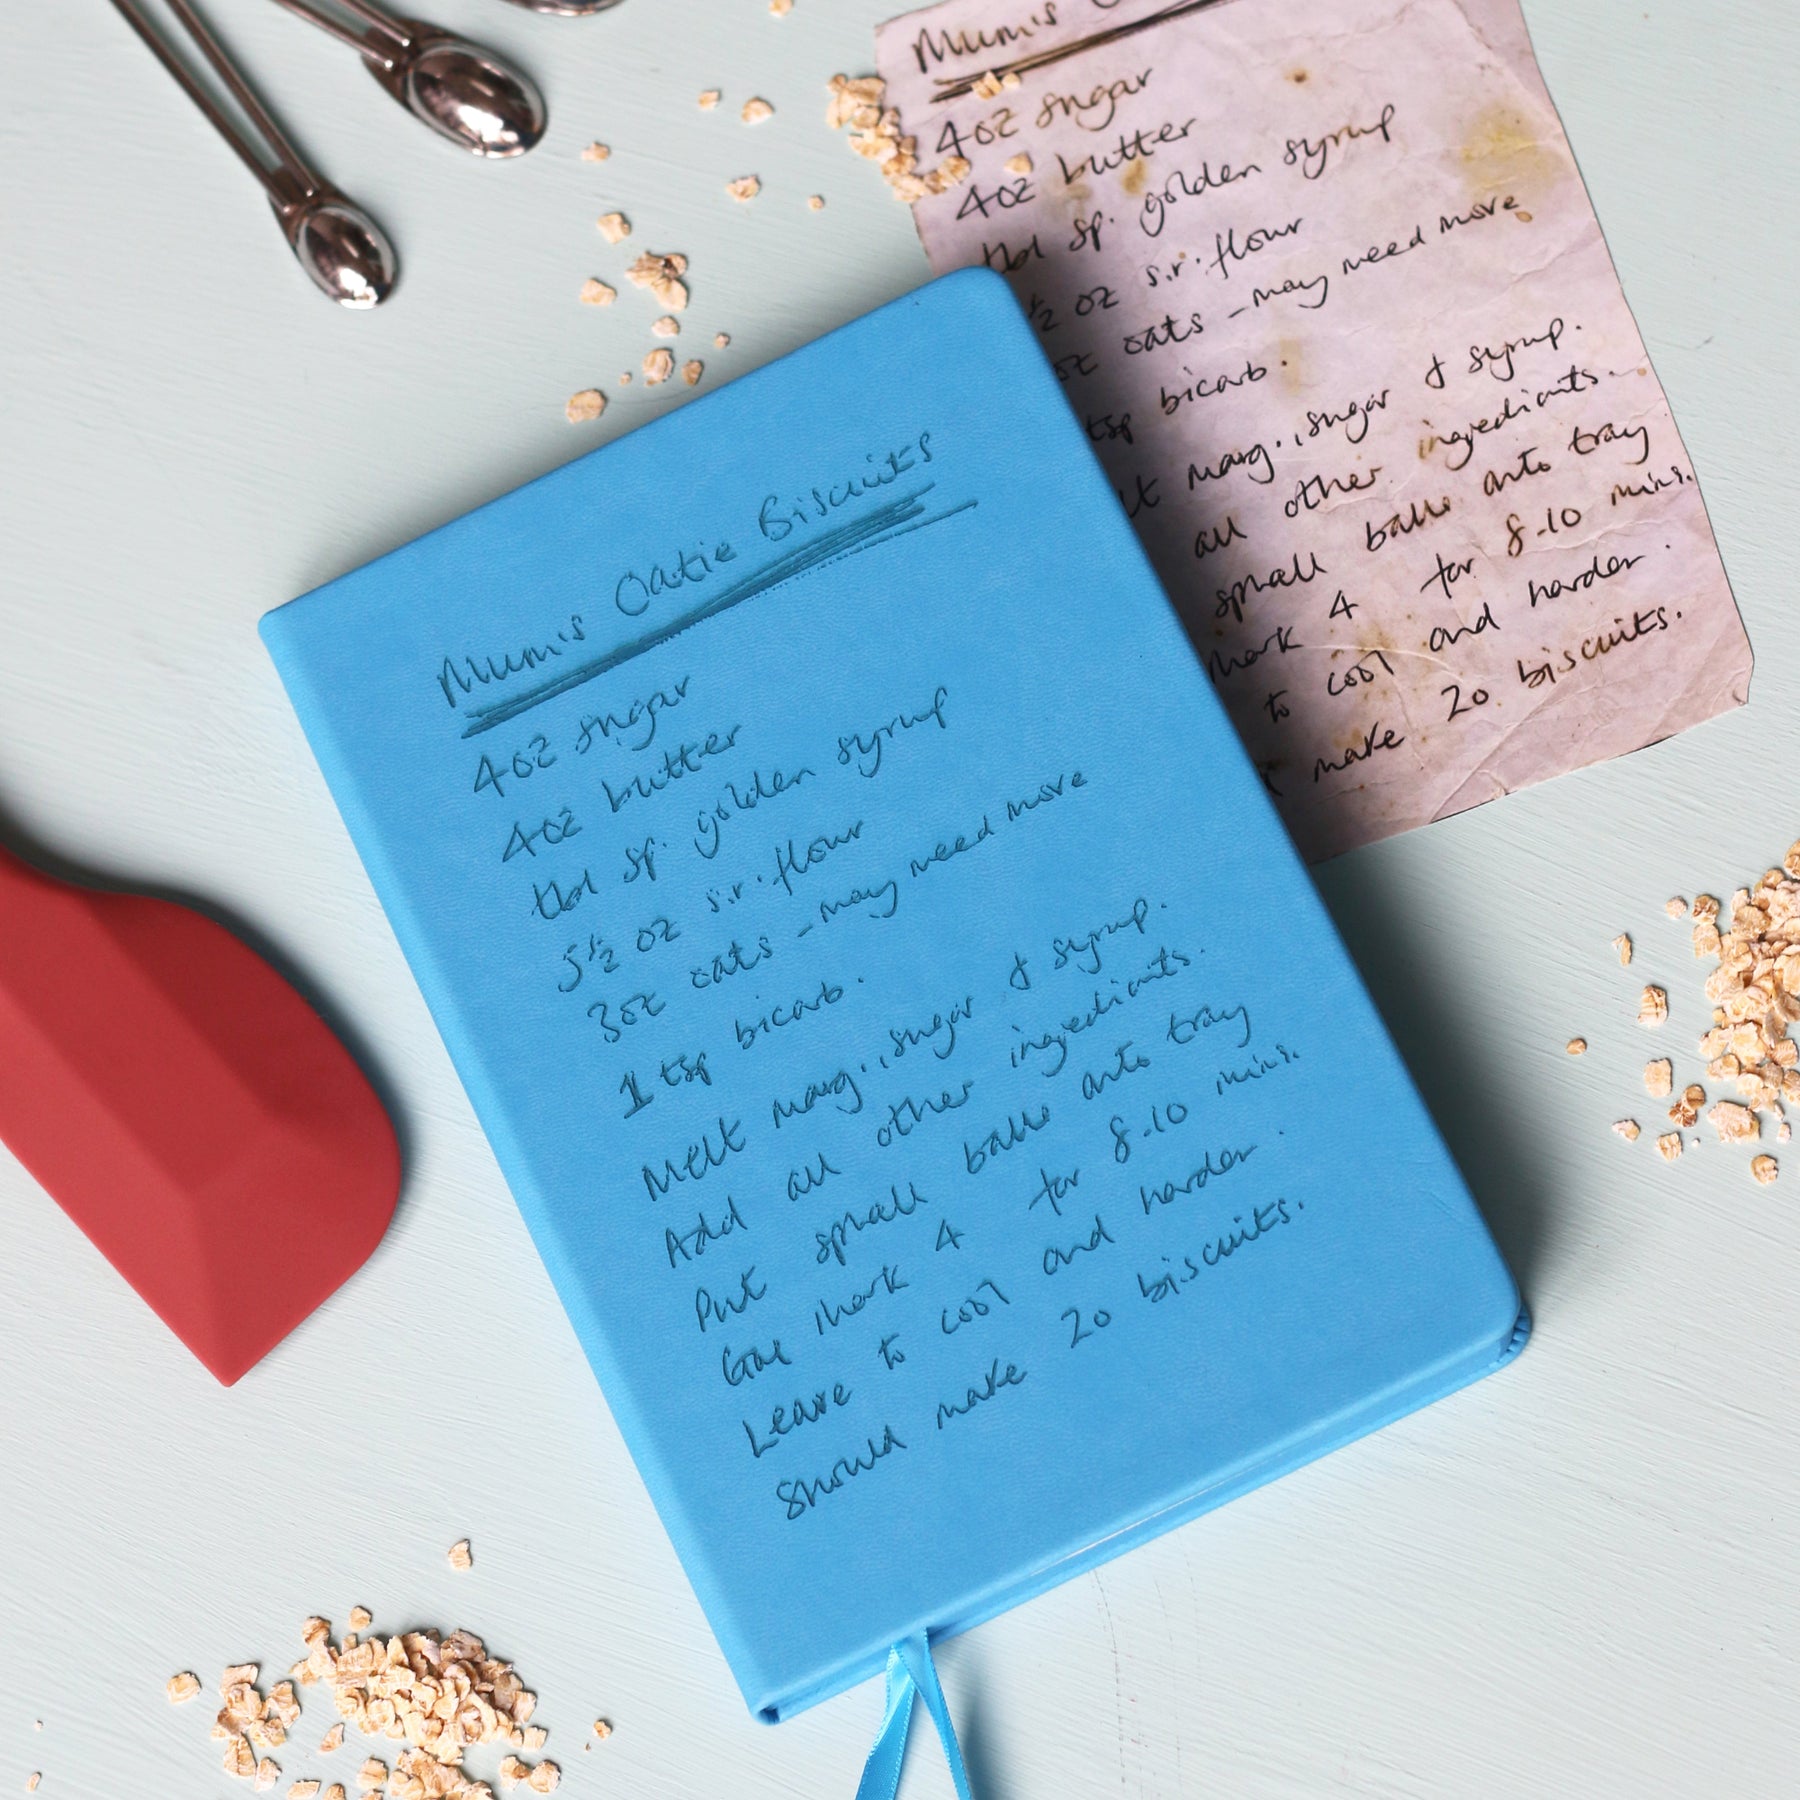 Mum's Oatie Biscuits
4oz sugar
4oz butter
tbl sp. golden syrup
5 1/2 oz s.r. flour
3oz oats - may need more
1 tsp bicarb.
Melt marg., sugar & syrup.
Add all other ingrediants.
Put small balls onto tray
Gas Mark 4 for 8-10 mins.
Leave to cool and harder.
Should make 20 biscuits.
Mum's
4oz sugar
4oz butter
tbl sp. golden syrup
1/2 oz s.r. flour
oz oats - may need more
tsp bicarb.
lt marg., sugar & syrup.
all other ingrediants.
small balls onto tray
Mark 4 for 8-10 mins.
to cool and harder.
make 20 biscuits.